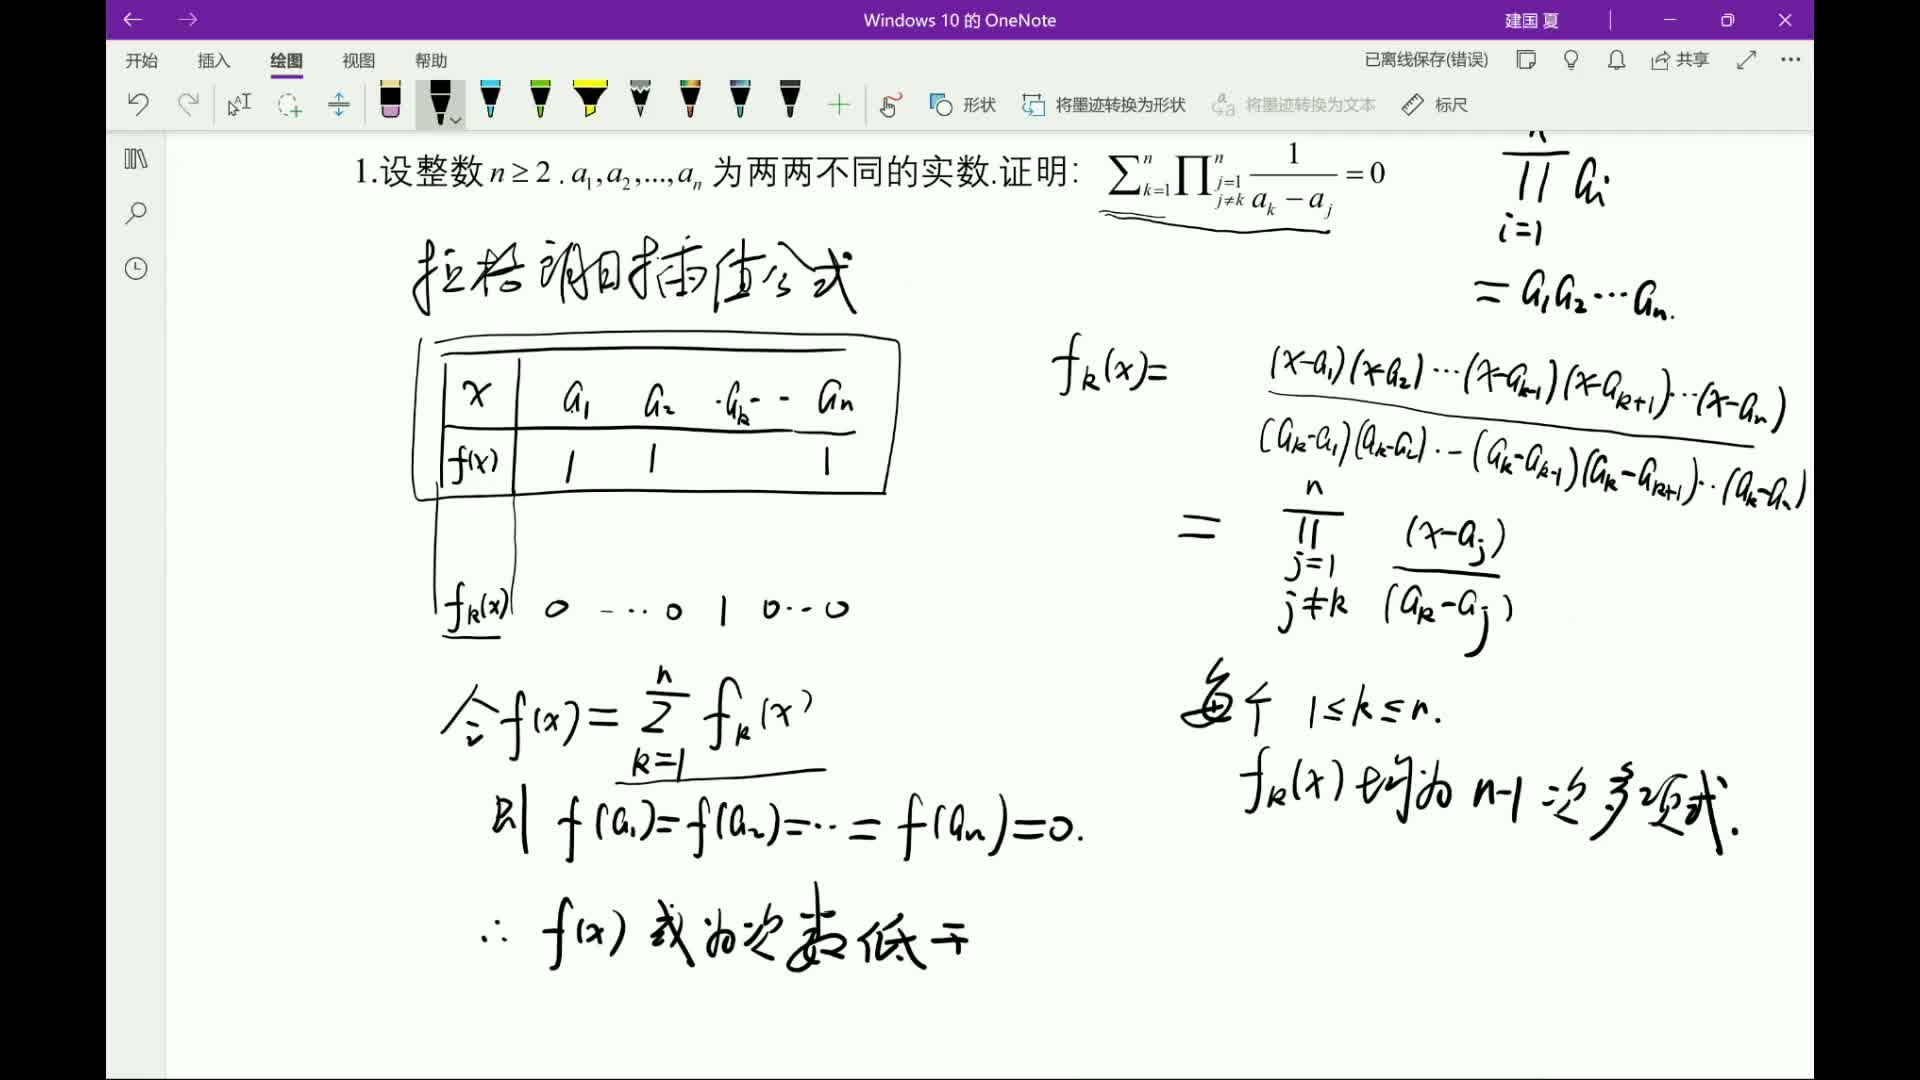 Windows 10 的 OneNote
建国 夏
开始 插入 绘图 视图 帮助
已离线保存(错误) 共享
形状 将墨迹转换为形状 将墨迹转换为文本 标尺
1.设整数 n ≥ 2 . a₁,a₂,...,aₙ 为两两不同的实数.证明: ∑ⁿₖ₌₁ ∏ⁿ_{j=1, j≠k} 1/(aₖ − aⱼ) = 0
n
∏ aᵢ
i=1
= a₁a₂⋯aₙ.
拉格朗日插值公式
x a₁ a₂ ·aₖ-- aₙ
f(x) 1 1 1
fₖ(x) 0 -··· 0 1 0··· 0
fₖ(x)= (x-a₁)(x-a₂)⋯(x-aₖ₋₁)(x-aₖ₊₁)⋯(x-aₙ)
(aₖ-a₁)(aₖ-a₂)⋯(aₖ-aₖ₋₁)(aₖ-aₖ₊₁)⋯(aₖ-aₙ)
= n ∏ j=1 j≠k (x-aⱼ)/(aₖ-aⱼ)
令 f(x) = n ∑ k=1 fₖ(x)
则 f(a₁)=f(a₂)=⋯=f(aₙ)=0.
∴ f(x) 或为次数低于
每个 1≤k≤n.
fₖ(x) 均为 n-1 次多项式.